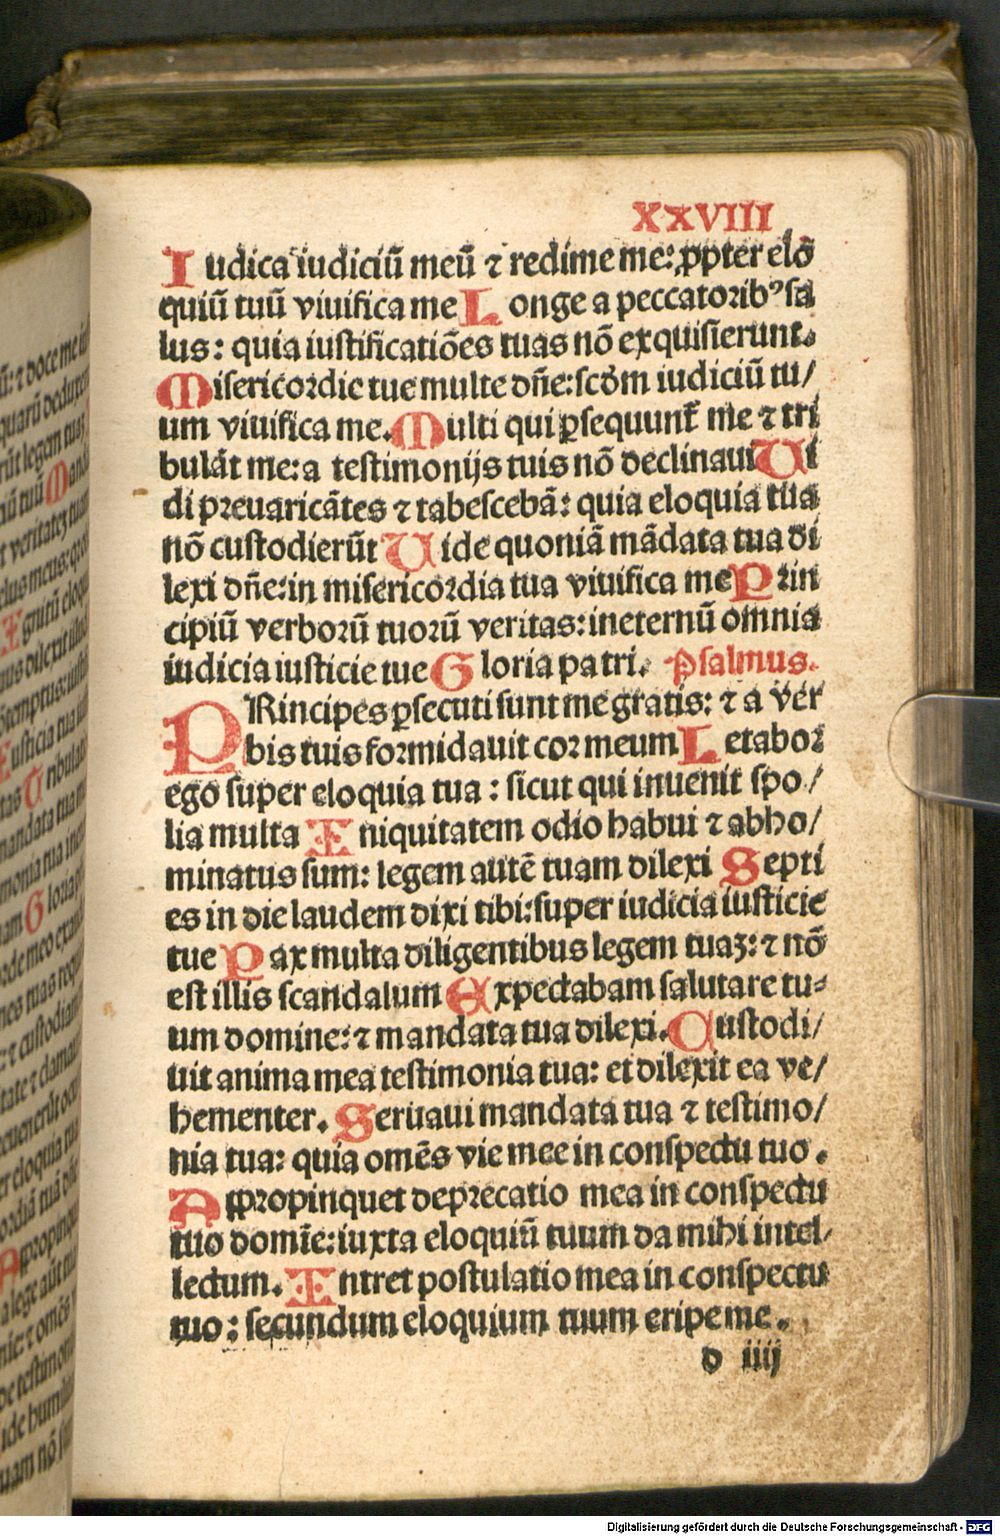 XXVIII
Iudica iudiciū meū ⁊ redime me: ꝓpter elo
quiū tuū viuifica me Longe a peccatoribꝰ sa
lus: quia iustificatiōes tuas nō exquisierunt.
Misericordie tue multe dn̄e: scd̄m iudiciū tu/
um viuifica me. Multi qui ꝑsequunt᷑ me ⁊ tri
bulāt me: a testimonijs tuis nō declinaui Ui
di preuaricātes ⁊ tabescebā: quia eloquia tua
nō custodierūt Uide quoniā mādata tua di
lexi dn̄e: in misericordia tua viuifica me Prin
cipiū verborū tuorū veritas: ineternū omnia
iudicia iusticie tue Gloria patri. Psalmus.
PRincipes ꝑsecuti sunt me gratis: ⁊ a ver
bis tuis formidauit cor meum Letabor
ego super eloquia tua: sicut qui inuenit spo/
lia multa Iniquitatem odio habui ⁊ abho/
minatus sum: legem autē tuam dilexi Septi
es in die laudem dixi tibi: super iudicia iusticie
tue Pax multa diligentibus legem tuaꝫ: ⁊ nō
est illis scandalum Expectabam salutare tu-
um domine: ⁊ mandata tua dilexi. Custodi/
uit anima mea testimonia tua: et dilexit ea ve/
hementer. Seruaui mandata tua ⁊ testimo/
nia tua: quia omēs vie mee in conspectu tuo.
Appropinquet deprecatio mea in conspectu
tuo domīe: iuxta eloquiū tuum da mihi intel/
lectum. Intret postulatio mea in conspectu
tuo: secundum eloquium tuum eripe me.
d iiij
Digitalisierung gefördert durch die Deutsche Forschungsgemeinschaft - DFG